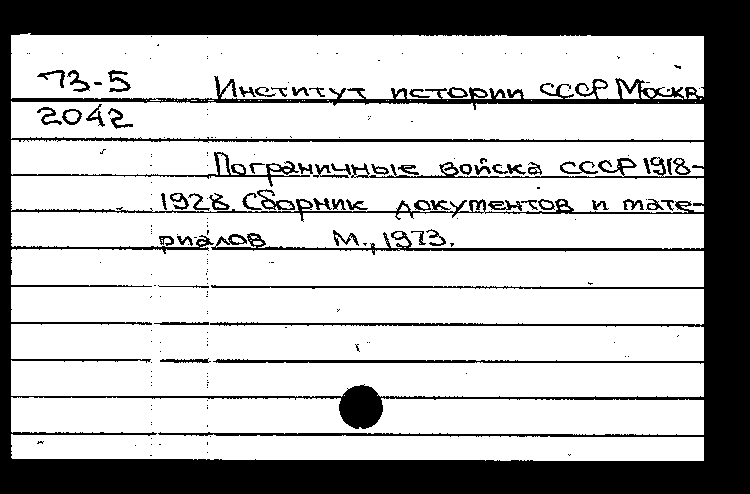 73-5 Институт истории СССР Москва
2042
Пограничные войска СССР 1918-
1928. Сборник документов и мате-
риалов М., 1973.